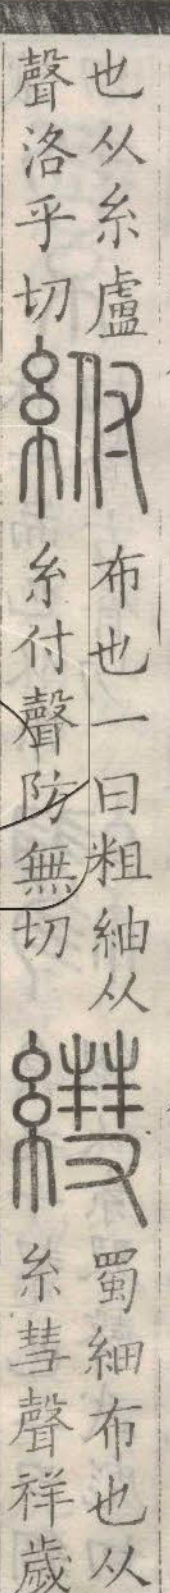 也从糸盧
聲洛乎切
紨
布也一曰粗紬从
糸付聲防無切
𦄑
蜀細布也从
糸彗聲祥歲